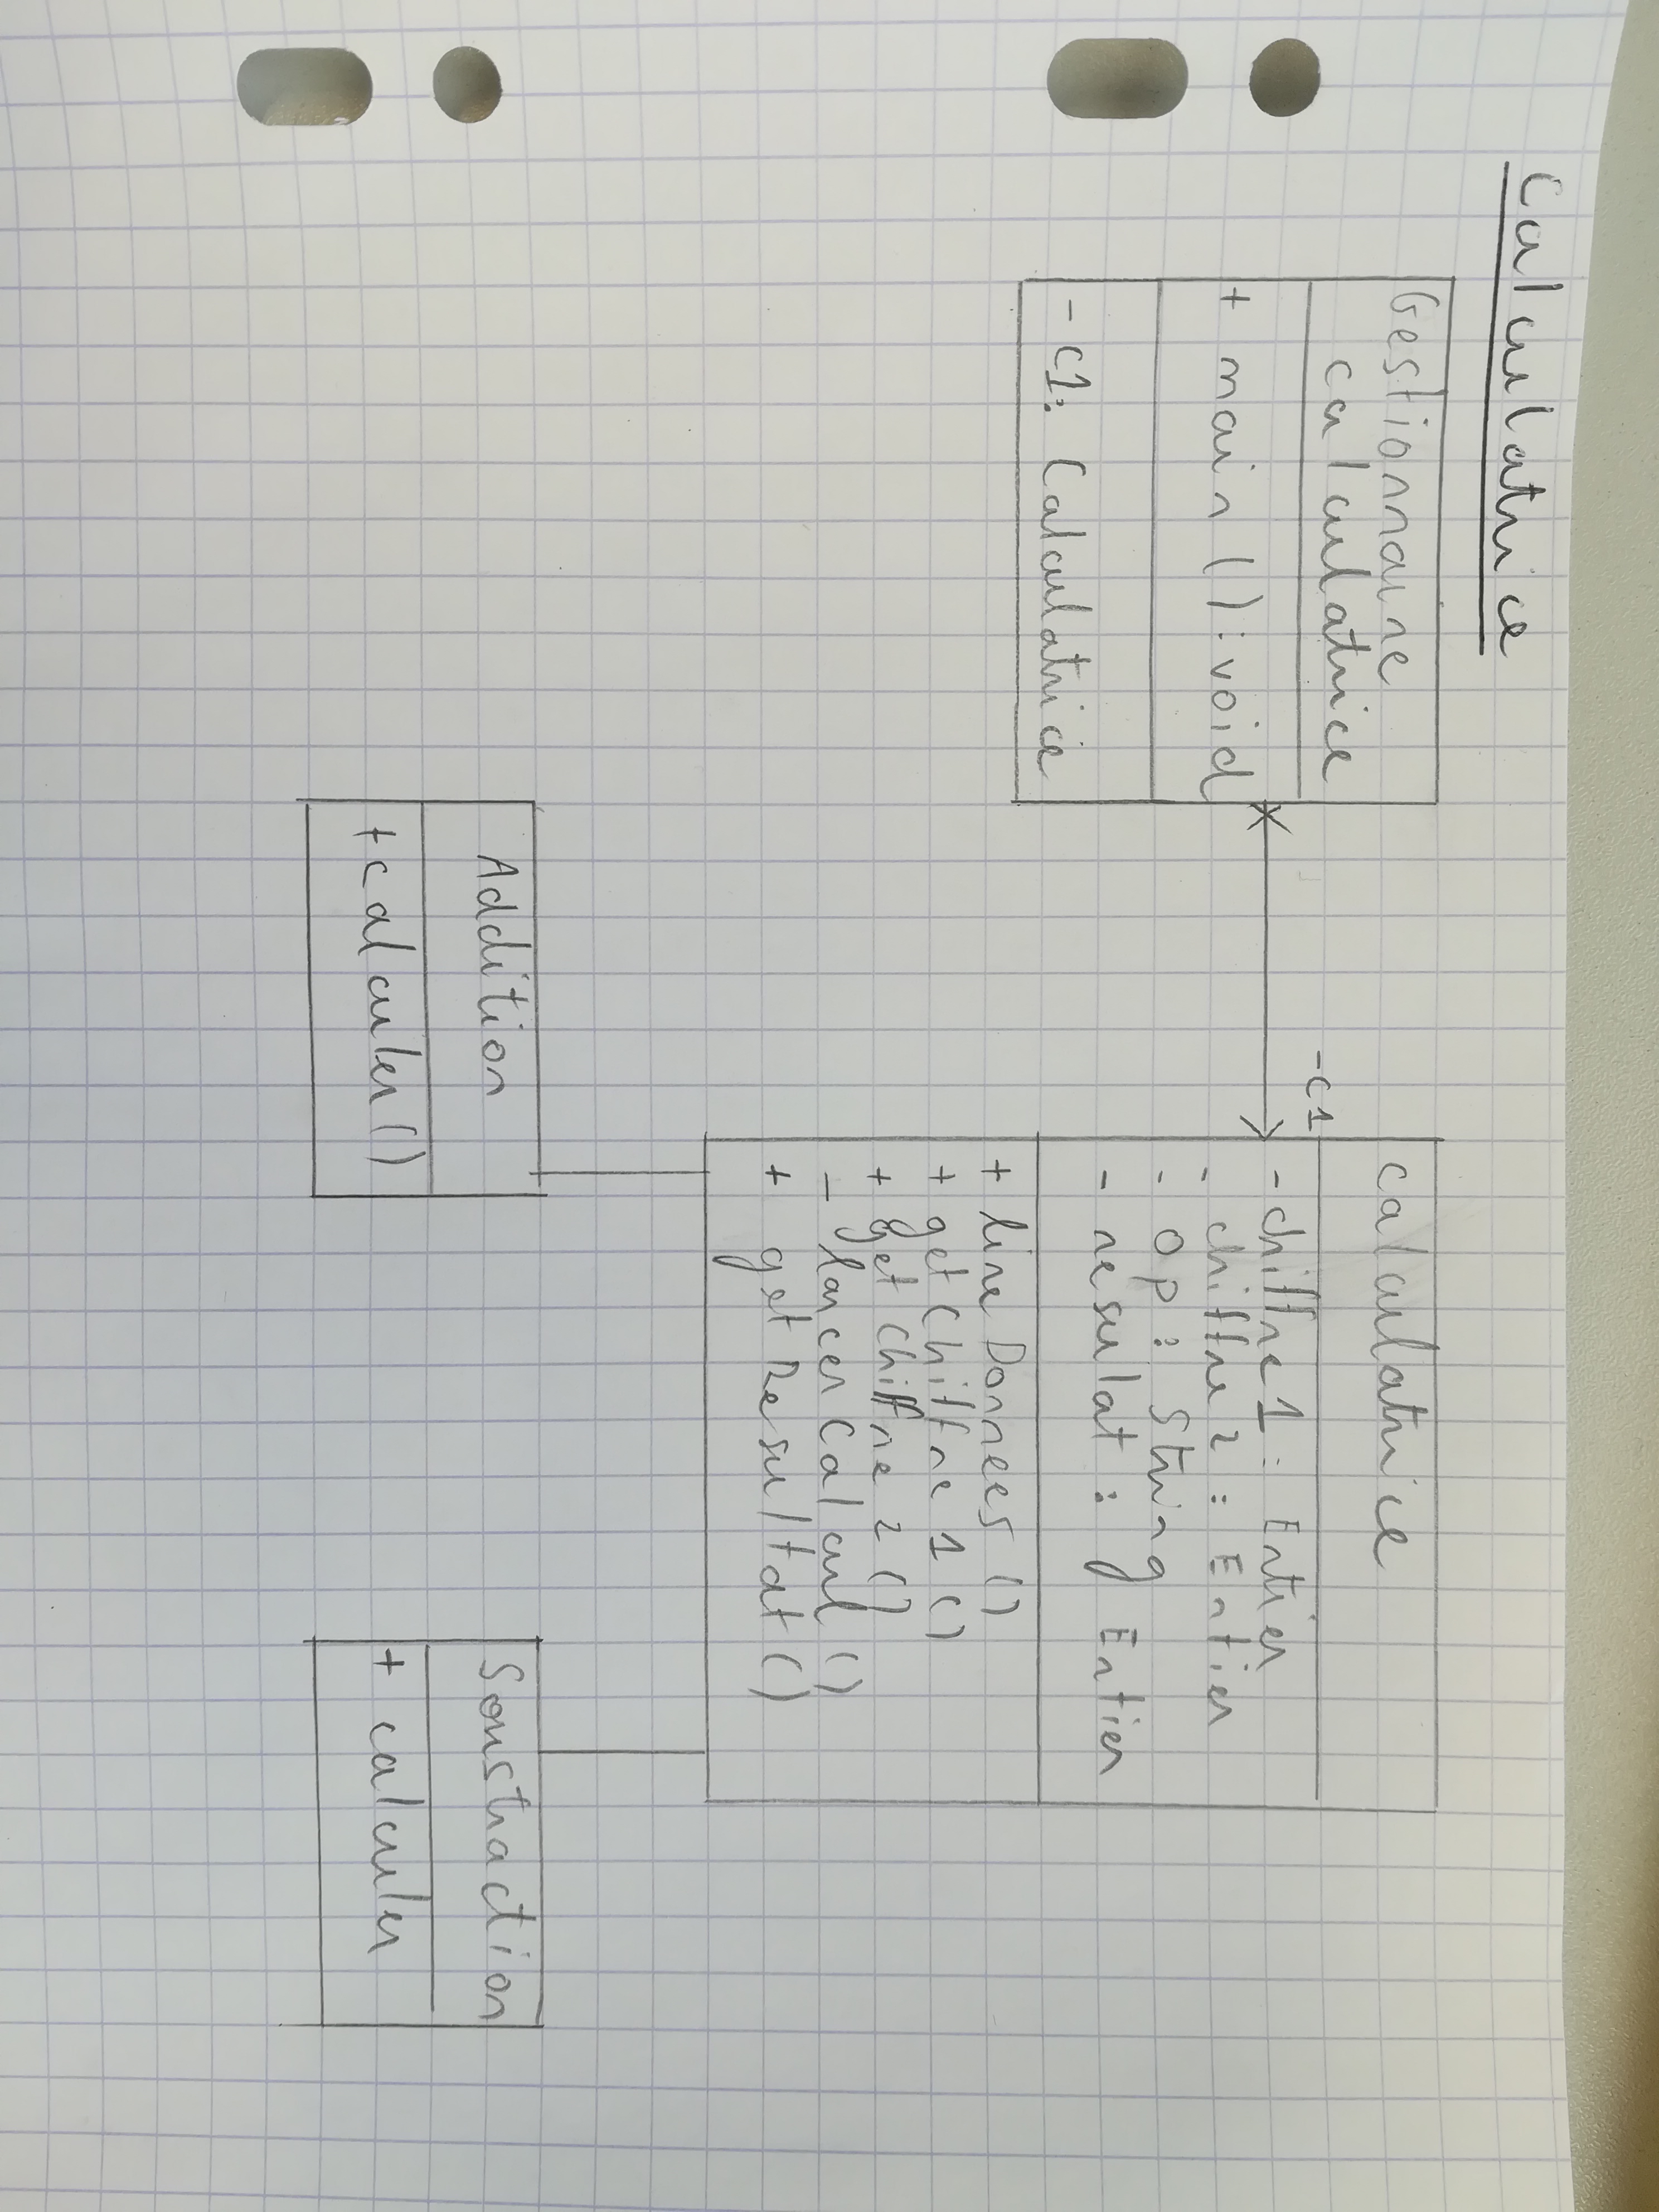 Calculatrice
Gestionnaire
calculatrice
+ main () : void
- C1: Calculatrice
-C1
calculatrice
- chiffre 1 : Entier
- chiffre 2 : Entier
- Op : String
- resulat : Entier
+ lire Donnees ()
+ get Chiffre 1 ()
+ get Chiffre 2 ()
- lancer Calcul ()
+ get Resultat ()
Addition
+ calculer ()
Soustraction
+ calculer